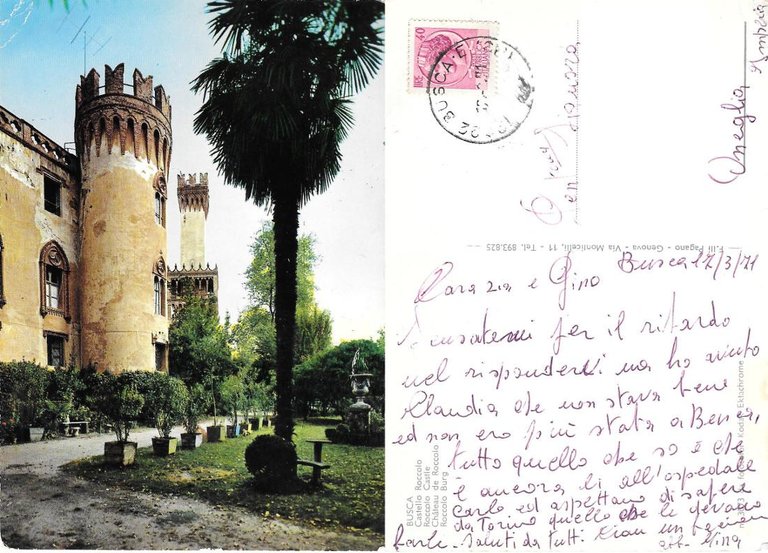 LIRE 40
BUSCA
Oneglia Imperia
F.lli Pagano - Genova - Via Monticelli, 11 - Tel. 893.825
Busca 17/3/71
Cara zia e Gino
Scusatemi per il ritardo
nel rispondervi ma ho avuto
Claudia che non stava bene
ed non ero più stata a Busca,
tutto quello che so è che
è ancora lì all'ospedale
Carlo ed aspettano di sapere
da Torino quello che le devono
fare. Saluti da tutti Ciao un
Nina
BUSCA
Castello Roccolo
Roccolo Castle
Château de Roccolo
Roccolo Burg
Kodak Ektachrome